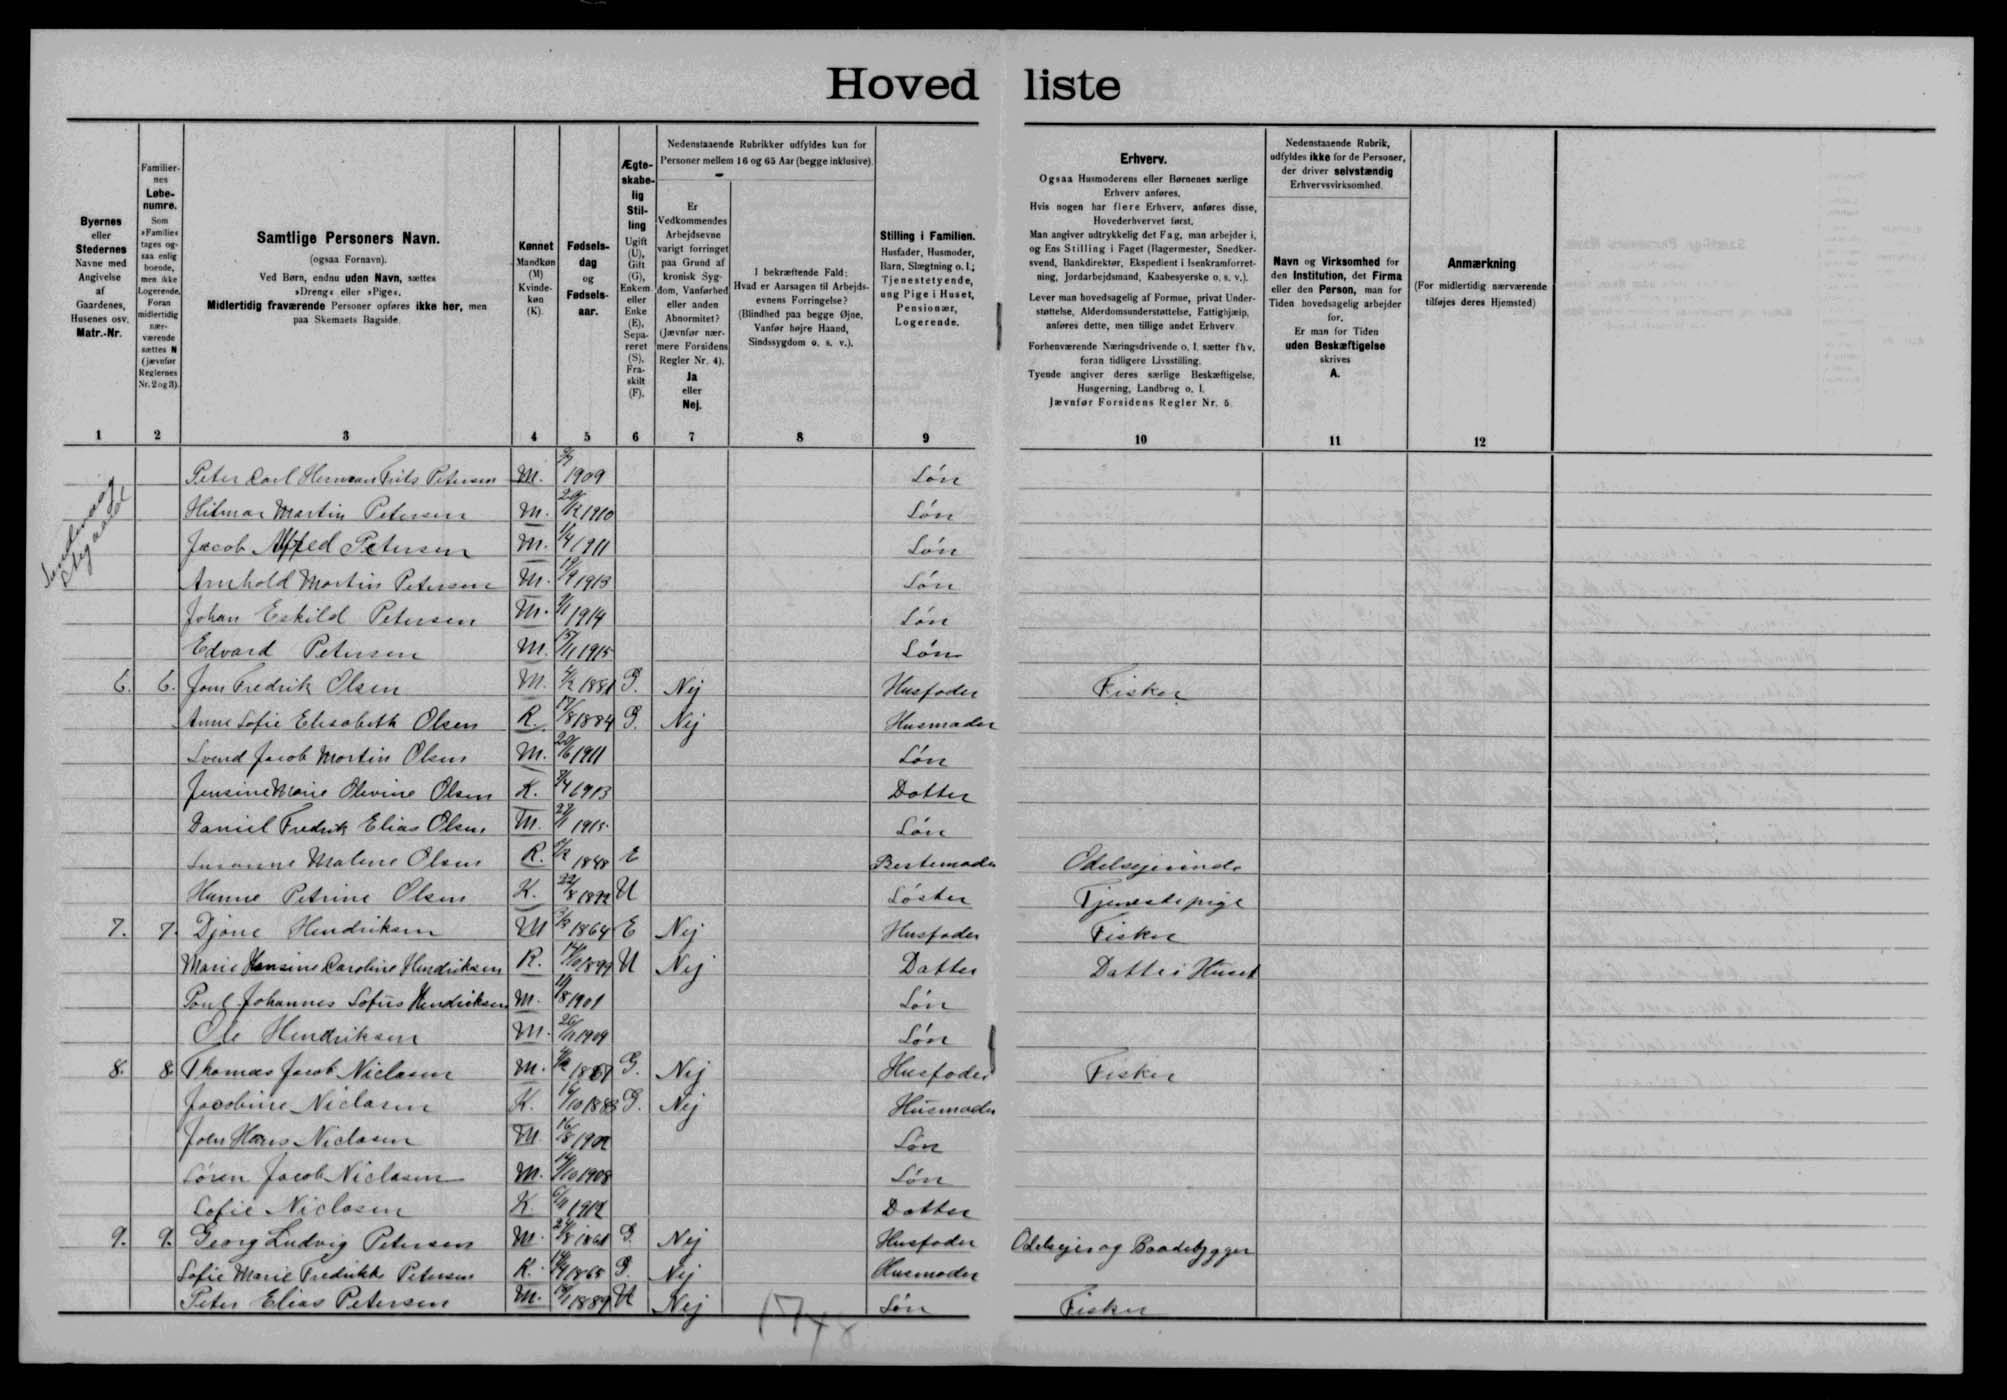 Hovedliste
Byernes eller Stedernes Navne med Angivelse af Gaardenes, Husenes osv. Matr.-Nr.
Familiernes Løbenumre. Som »Familie« tages ogsaa enlig boende, men ikke Logerende. Foran midlertidig nærværende sættes N (jævnfør Reglernes Nr. 2 og 3).
Samtlige Personers Navn. (ogsaa Fornavn). Ved Børn, endnu uden Navn, sættes »Dreng« eller »Pige«. Midlertidig fraværende Personer opføres ikke her, men paa Skemaets Bagside.
Kønnet Mandkøn (M) Kvindekøn (K).
Fødselsdag og Fødselsaar.
Ægteskabelig Stilling Ugift (U), Gift (G), Enkem. eller Enke (E), Separeret (S), Fraskilt (F).
Nedenstaaende Rubrikker udfyldes kun for Personer mellem 16 og 65 Aar (begge inklusive).
Er Vedkommendes Arbejdsevne varigt forringet paa Grund af kronisk Sygdom, Vanførhed eller anden Abnormitet? (Jævnfør nærmere Forsidens Regler Nr. 4). Ja eller Nej.
I bekræftende Fald: Hvad er Aarsagen til Arbejdsevnens Forringelse? (Blindhed paa begge Øjne, Vanfør højre Haand, Sindssygdom o. s. v.).
Stilling i Familien. Husfader, Husmoder, Barn, Slægtning o. l.; Tjenestetyende, ung Pige i Huset, Pensionær, Logerende.
Erhverv.
Ogsaa Husmoderens eller Børnenes særlige Erhverv anføres.
Hvis nogen har flere Erhverv, anføres disse, Hovederhvervet først.
Man angiver udtrykkelig det Fag, man arbejder i, og Ens Stilling i Faget (Bagermester, Snedkersvend, Bankdirektør, Ekspedient i Isenkramforretning, Jordarbejdsmand, Kaabesyerske o. s. v.).
Lever man hovedsagelig af Formue, privat Understøttelse, Alderdomsunderstøttelse, Fattighjælp, anføres dette, men tillige andet Erhverv
Forhenværende Næringsdrivende o. l. sætter fhv. foran tidligere Livsstilling.
Tyende angiver deres særlige Beskæftigelse, Husgerning, Landbrug o. l.
Jævnfør Forsidens Regler Nr. 5.
Nedenstaaende Rubrik, udfyldes ikke for de Personer, der driver selvstændig Erhvervsvirksomhed.
Navn og Virksomhed for den Institution, det Firma eller den Person, man for Tiden hovedsagelig arbejder for.
Er man for Tiden uden Beskæftigelse skrives A.
Anmærkning (For midlertidig nærværende tilføjes deres Hjemsted)
1 2 3 4 5 6 7 8 9 10 11 12
Peter Carl Herman Frits Petersen M. 1909 Søn
Hilmar Martin Petersen M. 1910 Søn
Jacob Alfred Petersen M. 1/4 1911 Søn
Arnhold Martin Petersen M. 19/9 1913 Søn
Johan Eskild Petersen M. 1914 Søn
Edvard Petersen M. 1915 Søn
6. 6. Joen Fredrik Olsen M. 1881 G. Nej Husfader Fisker
Anne Sofie Elisabeth Olsen K. 17/8 1884 G. Nej Husmoder
Svend Jacob Martin Olsen M. 20/6 1911 Søn
Jensine Marie Olevine Olsen K. 1913 Datter
Daniel Fredrik Elias Olsen M. 22/1 1915. Søn
Susanne Malene Olsen K. 1848 E Bestemoder Odelsejerinde
Hanne Petrine Olsen K. 22/8 1892 U Søster Tjenestepige
7. 7. Djone Hendriksen M 1864 E Nej Husfader Fisker
Marie Hansine Caroline Hendriksen K. 14/10 1899 U Nej Datter Datter i Huset
Poul Johannes Sofus Hendriksen M. 11/8 1901 Søn
Ole Hendriksen M. 26/11 1909 Søn
8. 8. Thomas Jacob Niclasen M. G. Nej Husfader Fisker
Jacobine Niclasen K. 16/10 1883 G. Nej Husmoder
Joen Hans Niclasen M. 16/8 1902 Søn
Søren Jacob Niclasen M. 14/10 1908 Søn
Sofie Niclasen K. 6/11 1912 Datter
9. 9. Georg Ludvig Petersen M. 24/8 1861 G. Nej Husfader Odelsejer og Baadebygger
Sofie Marie Fredrikke Petersen K. 1865 G. Nej Husmoder
Peter Elias Petersen M. 1889 U Nej Søn Fisker